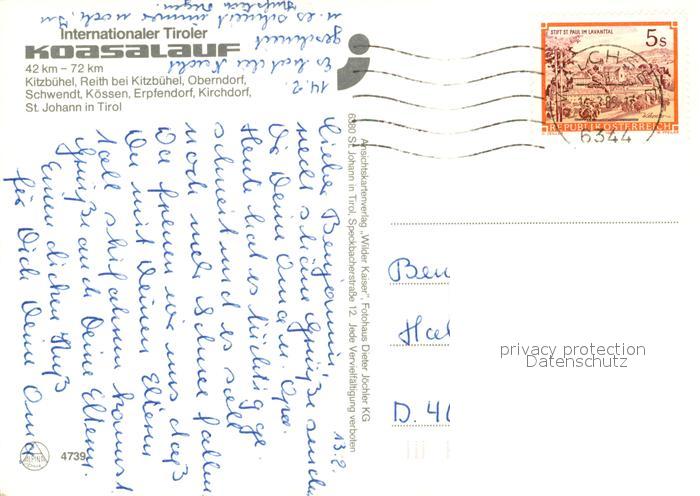 Internationaler Tiroler
KOASALAUF
42 km – 72 km
Kitzbühel, Reith bei Kitzbühel, Oberndorf,
Schwendt, Kössen, Erpfendorf, Kirchdorf,
St. Johann in Tirol
14.2.
Es hat die Nacht
geschneit
u. es schneit immer noch,
13.2.
Lieber Benjamin
recht schöne Grüße sendet
Dir Deine Oma u. Opa.
Heute hat es tüchtig ge
schneit und es soll
noch mehr Schnee fallen
Da freuen wir uns daß
Du mit Deinen Eltern
toll schifahren kannst
Grüße auch Deine Eltern.
Einen dicken Kuß
für Dich Deine Oma
Ansichtskartenverlag „Wilder Kaiser", Fotohaus Dieter Jöchler KG
6380 St. Johann in Tirol, Speckbacherstraße 12. Jede Vervielfältigung verboten
4739
STIFT ST. PAUL IM LAVANTTAL
5s
REPUBLIK ÖSTERREICH
6344
Ben
D. 4
privacy protection
Datenschutz